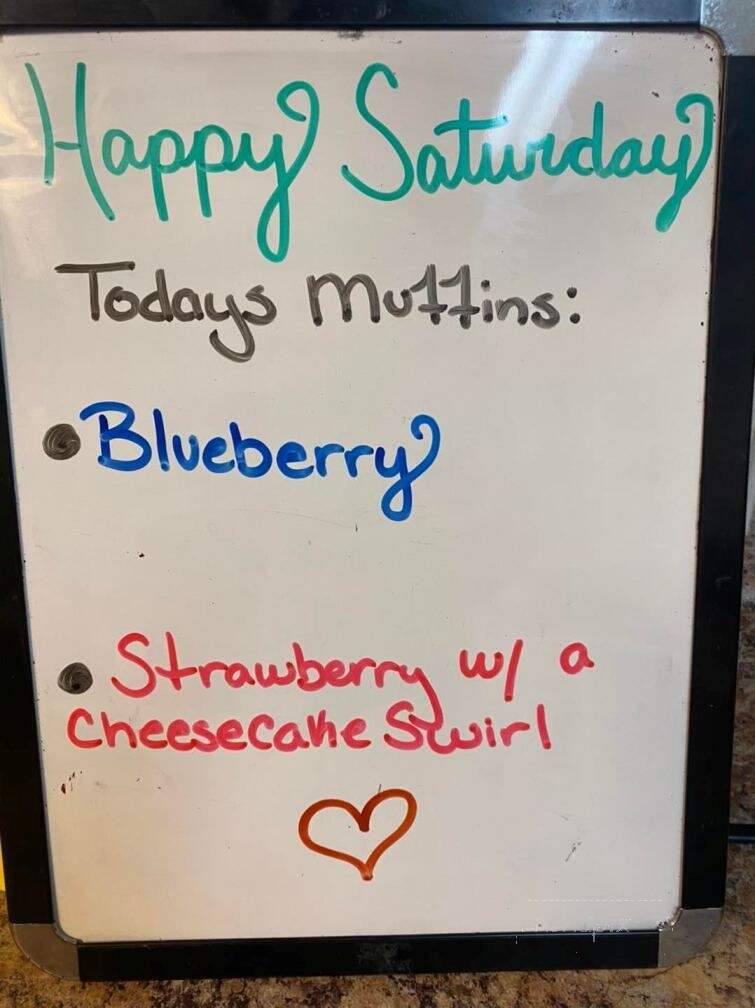 Happy Saturday
Todays Muffins:
• Blueberry
• Strawberry w/ a
Cheesecake Swirl